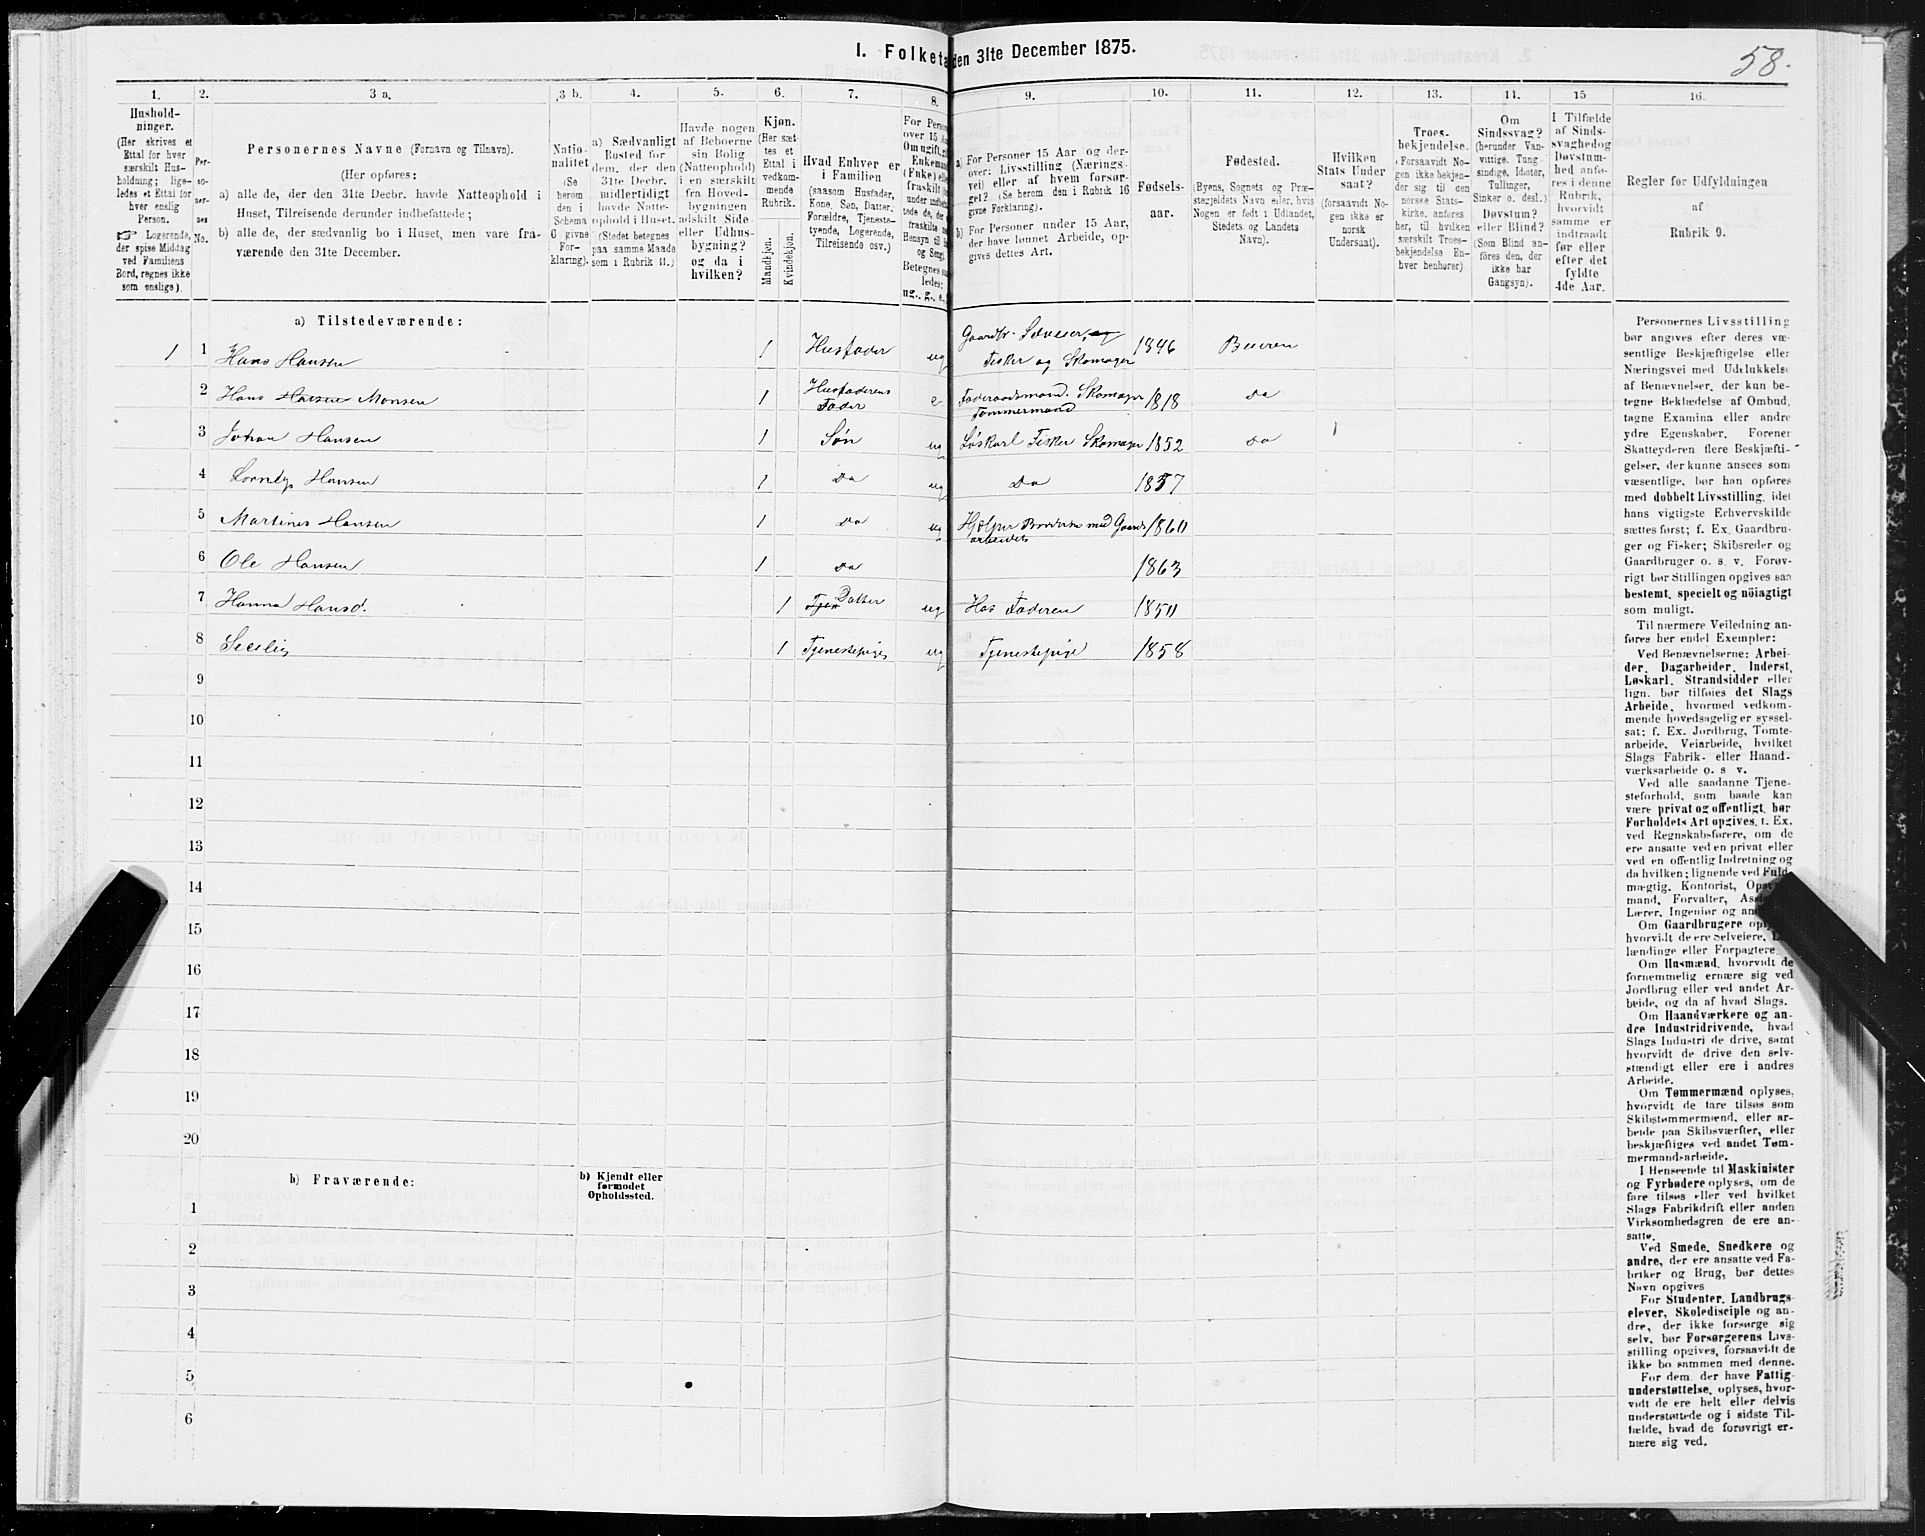 I. Folketæ den 31te December 1875.
58.
1. 2. 3 a. 3 b. 4. 5. 6. 7. 8. 9. 10. 11. 12. 13. 14. 15 16.
Hushold-
ninger.
(Her skrives et
Ettal for hver
særskilt Hus-
holdning; lige-
ledes et Ettal for
hver enslig
Person.
☞ Logerende,
der spise Middag
ved Familiens
Bord, regnes ikke
som enslige).
Per-
so-
ner-
nes
No.
Personernes Navne (Fornavn og Tilnavn).
(Her opføres:
a) alle de, der den 31te Decbr. havde Natteophold i
Huset, Tilreisende derunder indbefattede;
b) alle de, der sædvanlig bo i Huset, men vare fra-
værende den 31te December.
Natio-
nalitet
(Se
herom
den i
Schema
6 givne
For-
klaring).
a) Sædvanligt
Bosted for
dem, der den
31te Decbr.
midlertidigt
havde Natte-
ophold i Huset.
(Stedet betegnes
paa samme Maade
som i Rubrik 11.)
Havde nogen
af Beboerne
sin Bolig
(Natteophold)
i en særskilt
fra Hoved-
bygningen
adskilt Side-
eller Udhus-
bygning?
og da i
hvilken?
Kjøn.
(Her sæt-
tes et
Ettal i
vedkom-
mende
Rubrik.
Mandkjøn.
Kvindekjøn.
Hvad Enhver er
i Familien
(saasom Husfader,
Kone, Søn, Datter,
Forældre, Tjeneste-
tyende, Logerende,
Tilreisende osv.)
For Person
over 15 Aar
Om ugift, gi
Enkemand
(Fuke) elle
fraskilt
Betegnes saa
ledes:
ug., g., e.,
a) For Personer 15 Aar og der-
over: Livsstilling (Nærings-
vei) eller af hvem forsør-
get? (Se herom den i Rubrik 16
givne Forklaring).
b) For Personer under 15 Aar,
der have lønnet Arbeide, op-
gives dettes Art.
Fødsels-
aar.
Fødested.
(Byens, Sognets og Præ-
stegjeldets Navn eller, hvis
Nogen er født i Udlandet,
Stedets og Landets
Navn).
Hvilken
Stats Under
saat?
(forsaavidt No-
gen ikke er
norsk
Undersaat).
Troes-
bekjendelse.
(Forsaavidt No-
gen ikke bekjen-
der sig til den
norske Stats-
kirke, anføres
her, til hvilken
særskilt Troes-
bekjendelse En-
hver henhører)
Om
Sindssvag?
(herunder Van-
vittige, Tung
sindige, Idioter,
Tullinger,
Sinker o. desl.)
Døvstum?
eller Blind?
(Som Blind an-
føres den, der
ikke har
Gangsyn).
I Tilfælde
af Sinds-
svaghed og
Døvstum-
hed anfø-
res i denne
Rubrik,
hvorvidt
samme er
indtraadt
før eller
efter det
fyldte
4de Aar.
Regler for Udfyldningen
af
Rubrik 9.
a) Tilstedeværende:
1 1 Hans Hansen 1 Husfader ug Gaardbr. Selveier, og Fisker og Skomager 1846 Beieren
2 Hans Hansen Monsen 1 Husfaderens Fader e Føderaadsmand. Skomager Tømmermand 1818 Do
3 Johan Hansen 1 Søn ug Løskarl Fisker Skomager 1852 Do
4 Hansen 1 Do ug Do 1857
5 Martines Hansen 1 Do ug Hjelper Broderen med Gaards arbeidet 1860
6 Ole Hansen 1 Do 1863
7 Hanna Hansd. 1 Tjen Datter ug Hos Faderen 1850
8 Secelie 1 Tjenestepige ug Tjenestepige 1858
9
10
11
12
13
14
15
16
17
18
19
20
b) Fraværende:
b) Kjendt eller
formodet
Opholdssted.
1
2
3
4
5
6
Personernes Livsstilling
bør angives efter deres væ-
sentlige Beskjæftigelse eller
Næringsvei med Udelukkelse
af Benævnelser, der kun be-
tegne Beklædelse af Ombud,
tagne Examina eller andre
ydre Egenskaber. Forener
Skatteyderen flere Beskjæfti-
gelser, der kunne ansees som
væsentlige, bør han opføres
med dobbelt Livsstilling, idet
hans vigtigste Erhvervskilde
sættes først; f. Ex. Gaardbru-
ger og Fisker; Skibsreder og
Gaardbruger o. s. v. Forøv-
rigt bør Stillingen opgives saa
bestemt, specielt og nöiagtigt
som muligt.
Til nærmere Veiledning an-
føres her endel Exempler:
Ved Benævnelserne: Arbei-
der, Dagarbeider, Inderst,
Løskarl, Strandsidder eller
lign. bør tilføies det Slags
Arbeide, hvormed vedkom-
mende hovedsagelig er syssel-
sat; f. Ex. Jordbrug, Tomte-
arbeide, Veiarbeide, hvilket
Slags Fabrik- eller Haand-
værksarbeide o. s. v.
Ved alle saadanne Tjene-
steforhold, som baade kan
være privat og offentligt, bør
Forholdets Art opgives, f. Ex.
ved Regnskabsførere, om de
ere ansatte ved en privat eller
ved en offentlig Indretning og
da hvilken; lignende ved Fuld-
mægtig, Kontorist, Opsyns
mand, Forvalter, Ass
Lærer, Ingeniør og an
Om Gaardbrugere oply
hvorvidt de ere Selveiere,
lændinge eller Forpagtere.
Om Husmænd, hvorvidt de
fornemmelig ernære sig ved
Jordbrug eller ved andet Ar-
beide, og da af hvad Slags.
Om Haandværkere og an-
dre Industridrivende, hvad
Slags Industri de drive, samt
hvorvidt de drive den selv-
stændigt eller ere i andres
Arbeide.
Om Tømmermænd oplyses,
hvorvidt de fare tilsøs som
Skibstømmermænd, eller ar-
beide paa Skibsværfter, eller
beskjæftiges ved andet Tøm-
mermandsarbeide.
I Henseende til Maskinister
og Fyrbødere oplyses, om de
fare tilsøs eller ved hvilket
Slags Fabrikdrift eller anden
Virksomhedsgren de ere an-
satte.
Ved Smede, Snedkere og
andre, der ere ansatte ved Fa-
briker og Brug, bør dettes
Navn opgives
For Studenter, Landbrugs-
elever, Skoledisciple og an-
dre, der ikke forsørge sig
selv, bør Forsørgerens Livs-
stilling opgives, forsaavidt de
ikke bo sammen med denne.
For dem, der have Fattig-
understøttelse, oplyses, hvor-
vidt de ere helt eller delvis
understøttede og i sidste Til-
fælde, hvad de forøvrigt er-
nære sig ved.